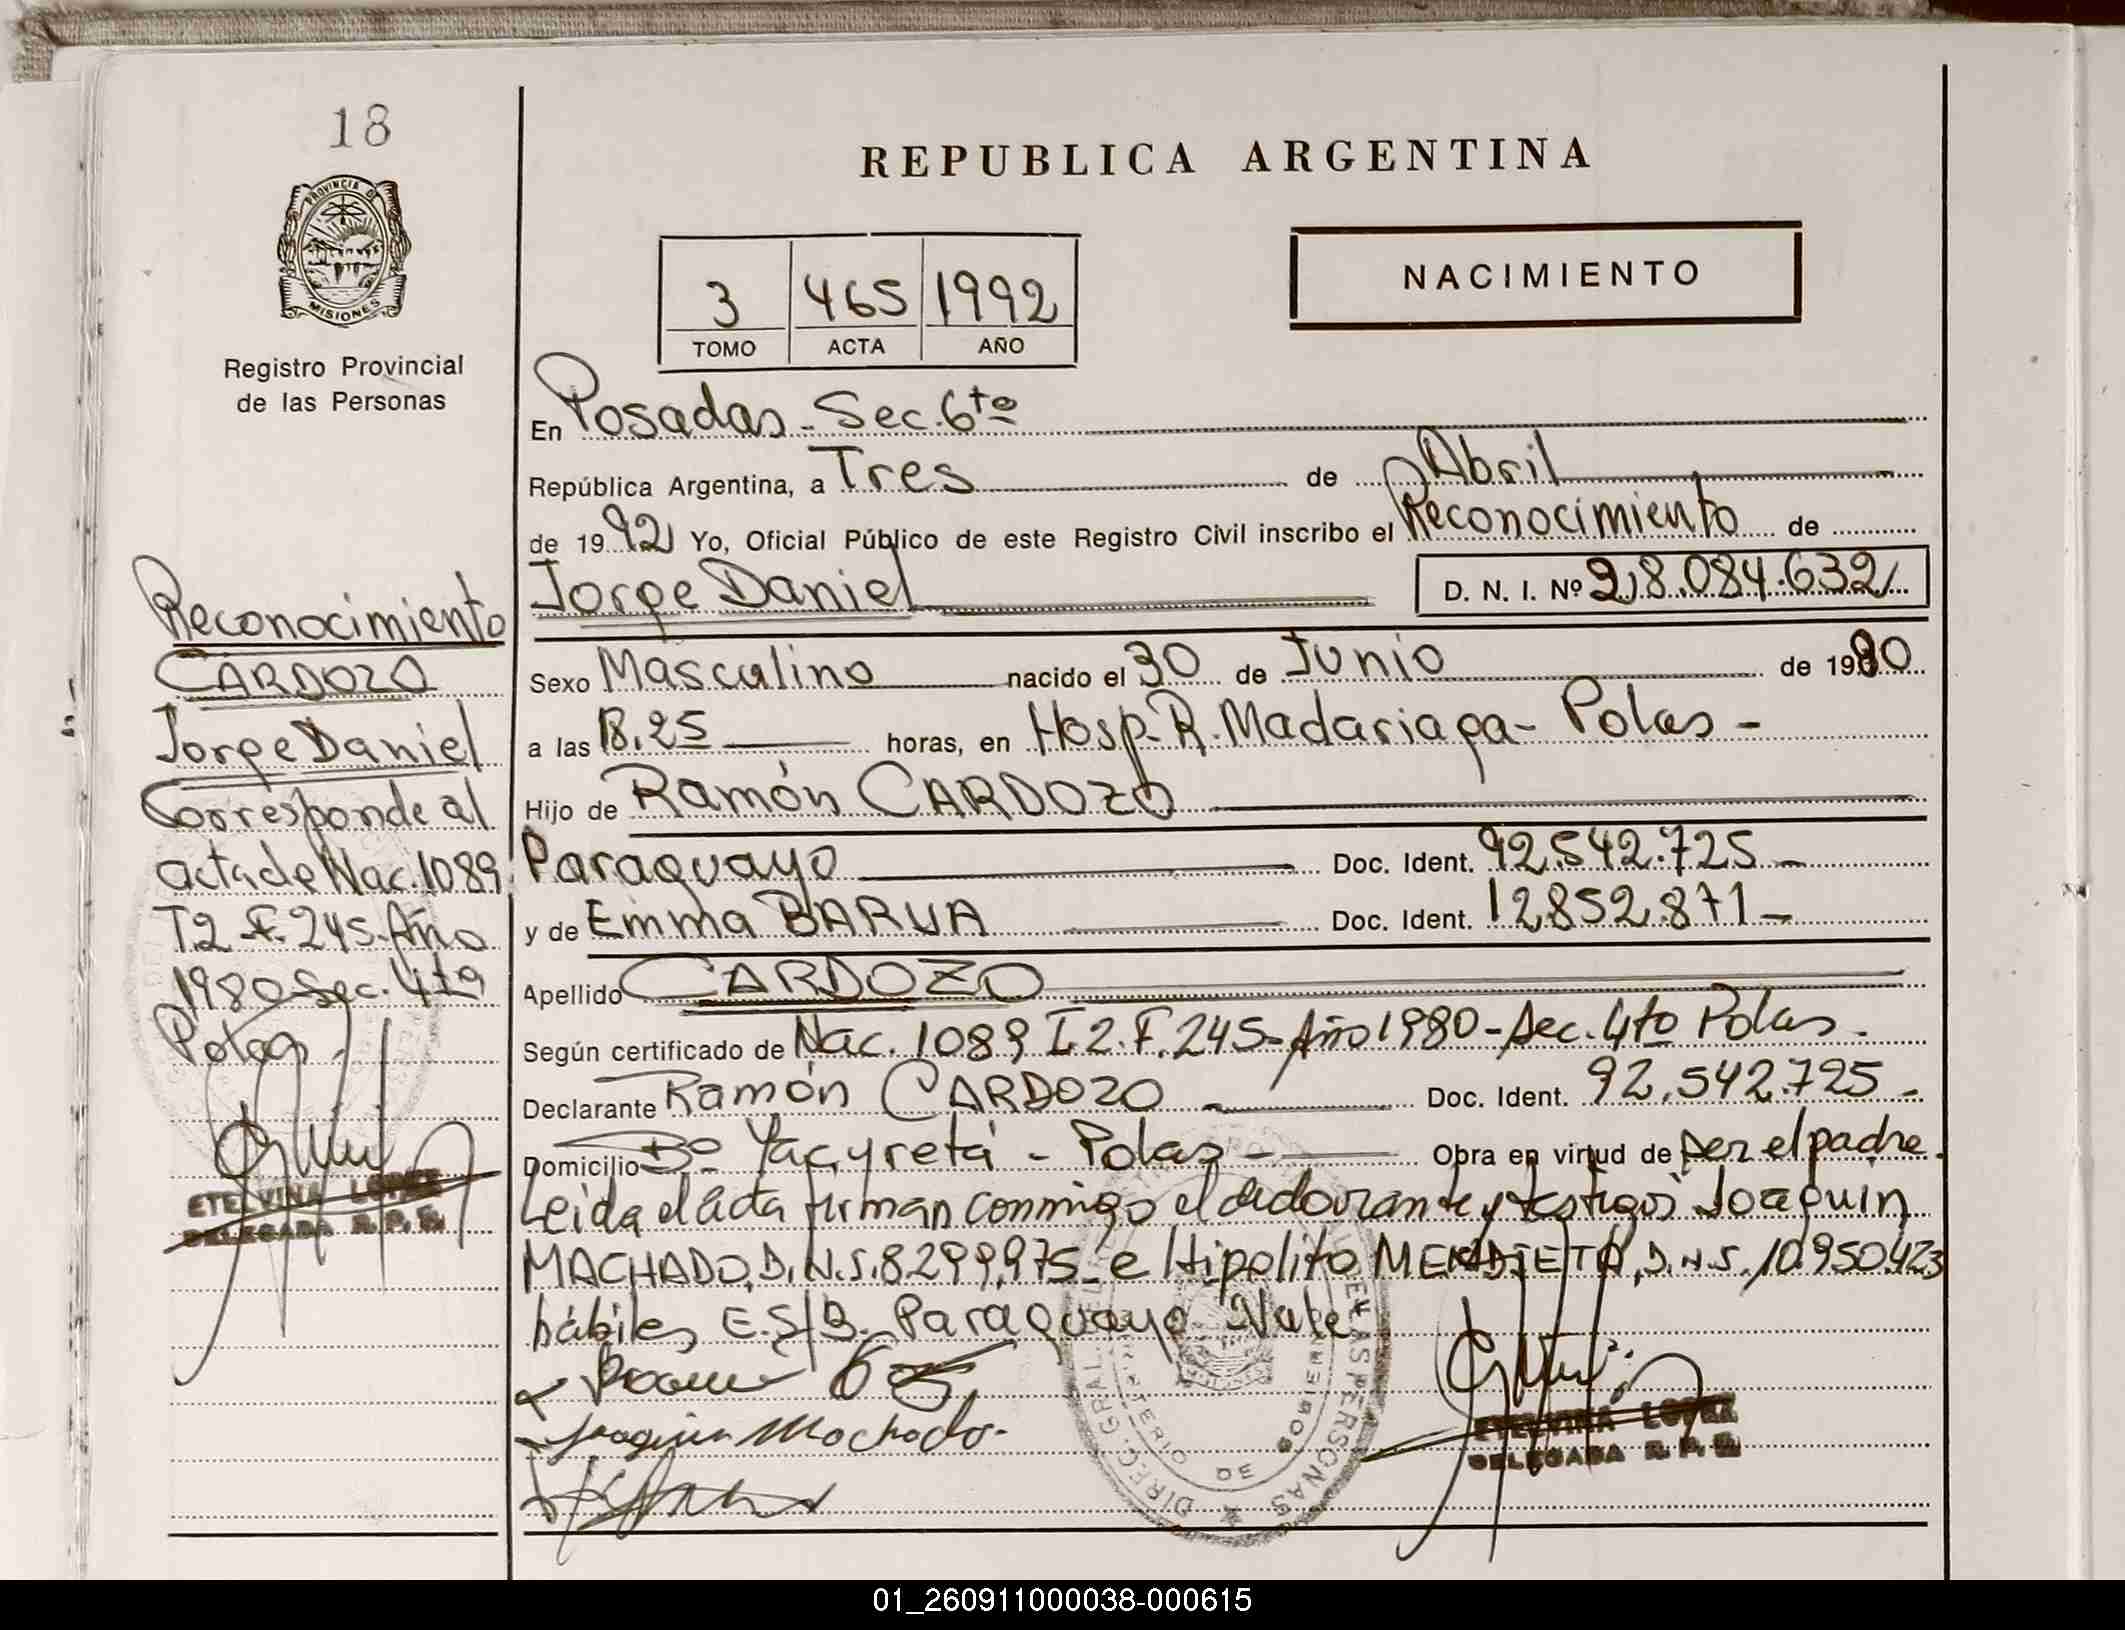 18
PROVINCIA DE
MISIONES
Registro Provincial
de las Personas
Reconocimiento
CARDOZO
Jorge Daniel
Corresponde al
acta de Nac. 1089
T.2 F. 245-Año
1980 Sec. 4ta
Pdas
ETELVINA LOPEZ
DELEGADA R. P. P.
REPUBLICA ARGENTINA
3 465 1992
TOMO ACTA AÑO
NACIMIENTO
En Posadas - Sec. 6to
República Argentina, a Tres de Abril
de 1992 Yo, Oficial Público de este Registro Civil inscribo el Reconocimiento de
Jorge Daniel D. N. I. Nº 28.084.632
Sexo Masculino nacido el 30 de Junio de 1980
a las 18,25 horas, en Hosp. R. Madariaga - Pdas -
Hijo de Ramón CARDOZO
Paraguayo Doc. Ident. 92.542.725 -
y de Emma BARUA Doc. Ident. 12.852.871 -
Apellido CARDOZO
Según certificado de Nac. 1089 T. 2. F. 245 - Año 1980 - Sec. 4to Pdas -
Declarante Ramón CARDOZO Doc. Ident. 92.542.725 -
Domicilio Bº Yacyretá - Pdas - Obra en virtud de ser el padre.
Leida el acta firman conmigo el declarante y testigos Joaquin
MACHADO, D.N.I. 8.299.975 - e Hipolito MENDIETA, D.N.I. 10.950.423
hábiles, E.S/B. Paraguayo Vale
Joaquin Machado.
ETELVINA LOPEZ
DELEGADA R. P. P.
DIREC. GRAL. DEL REG. DE LAS PERSONAS
MINISTERIO DE GOBIERNO
01_260911000038-000615